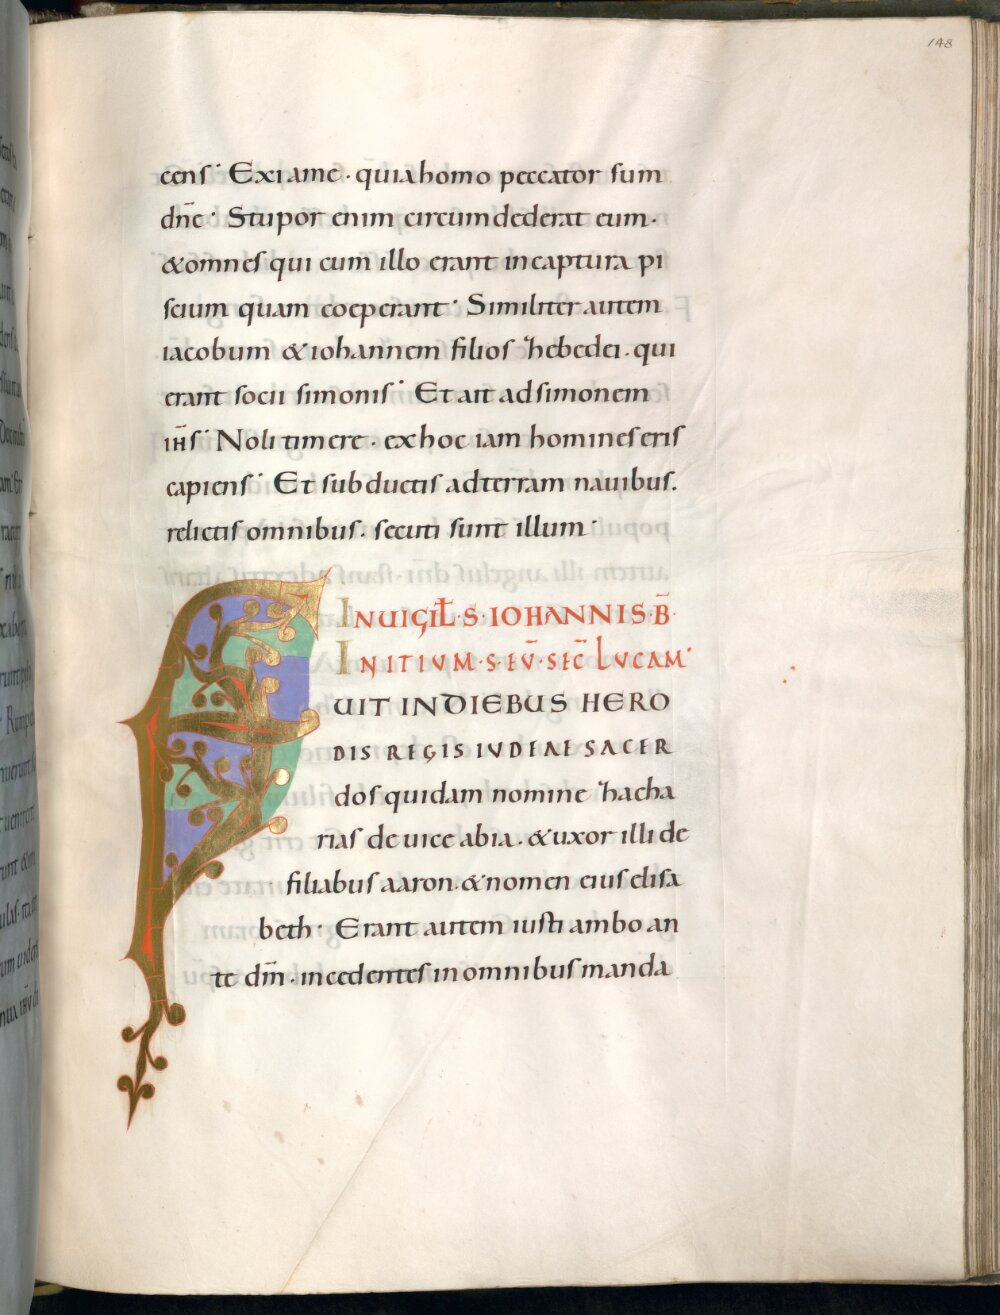 148
cens· Exi ame · quia homo peccator sum
dn̄e· Stupor enim circumdederat eum·
&omnes qui cum illo erant incaptura pi
scium quam coeperant· Similiter autem
iacobum &iohannem filios hebedei · qui
erant socii simonis· Et ait adsimonem
ihs· Noli timere · exhoc iam homines eris
capiens· Et subductis adterram nauibus.
relictis omnibus. secuti sunt illum·
INUIGIL̄·S·IOHANNIS·B̄·
INITIVM·S·EV̄·SEC̄ LVCAM·
FUIT INDIEBUS HERO
DIS REGIS IVDEAE SACER
dos quidam nomine hacha
rias de uice abia. &uxor illi de
filiabus aaron. &nomen eius elisa
beth· Erant autem iusti ambo an
te dm̄. incedentes in omnibus manda